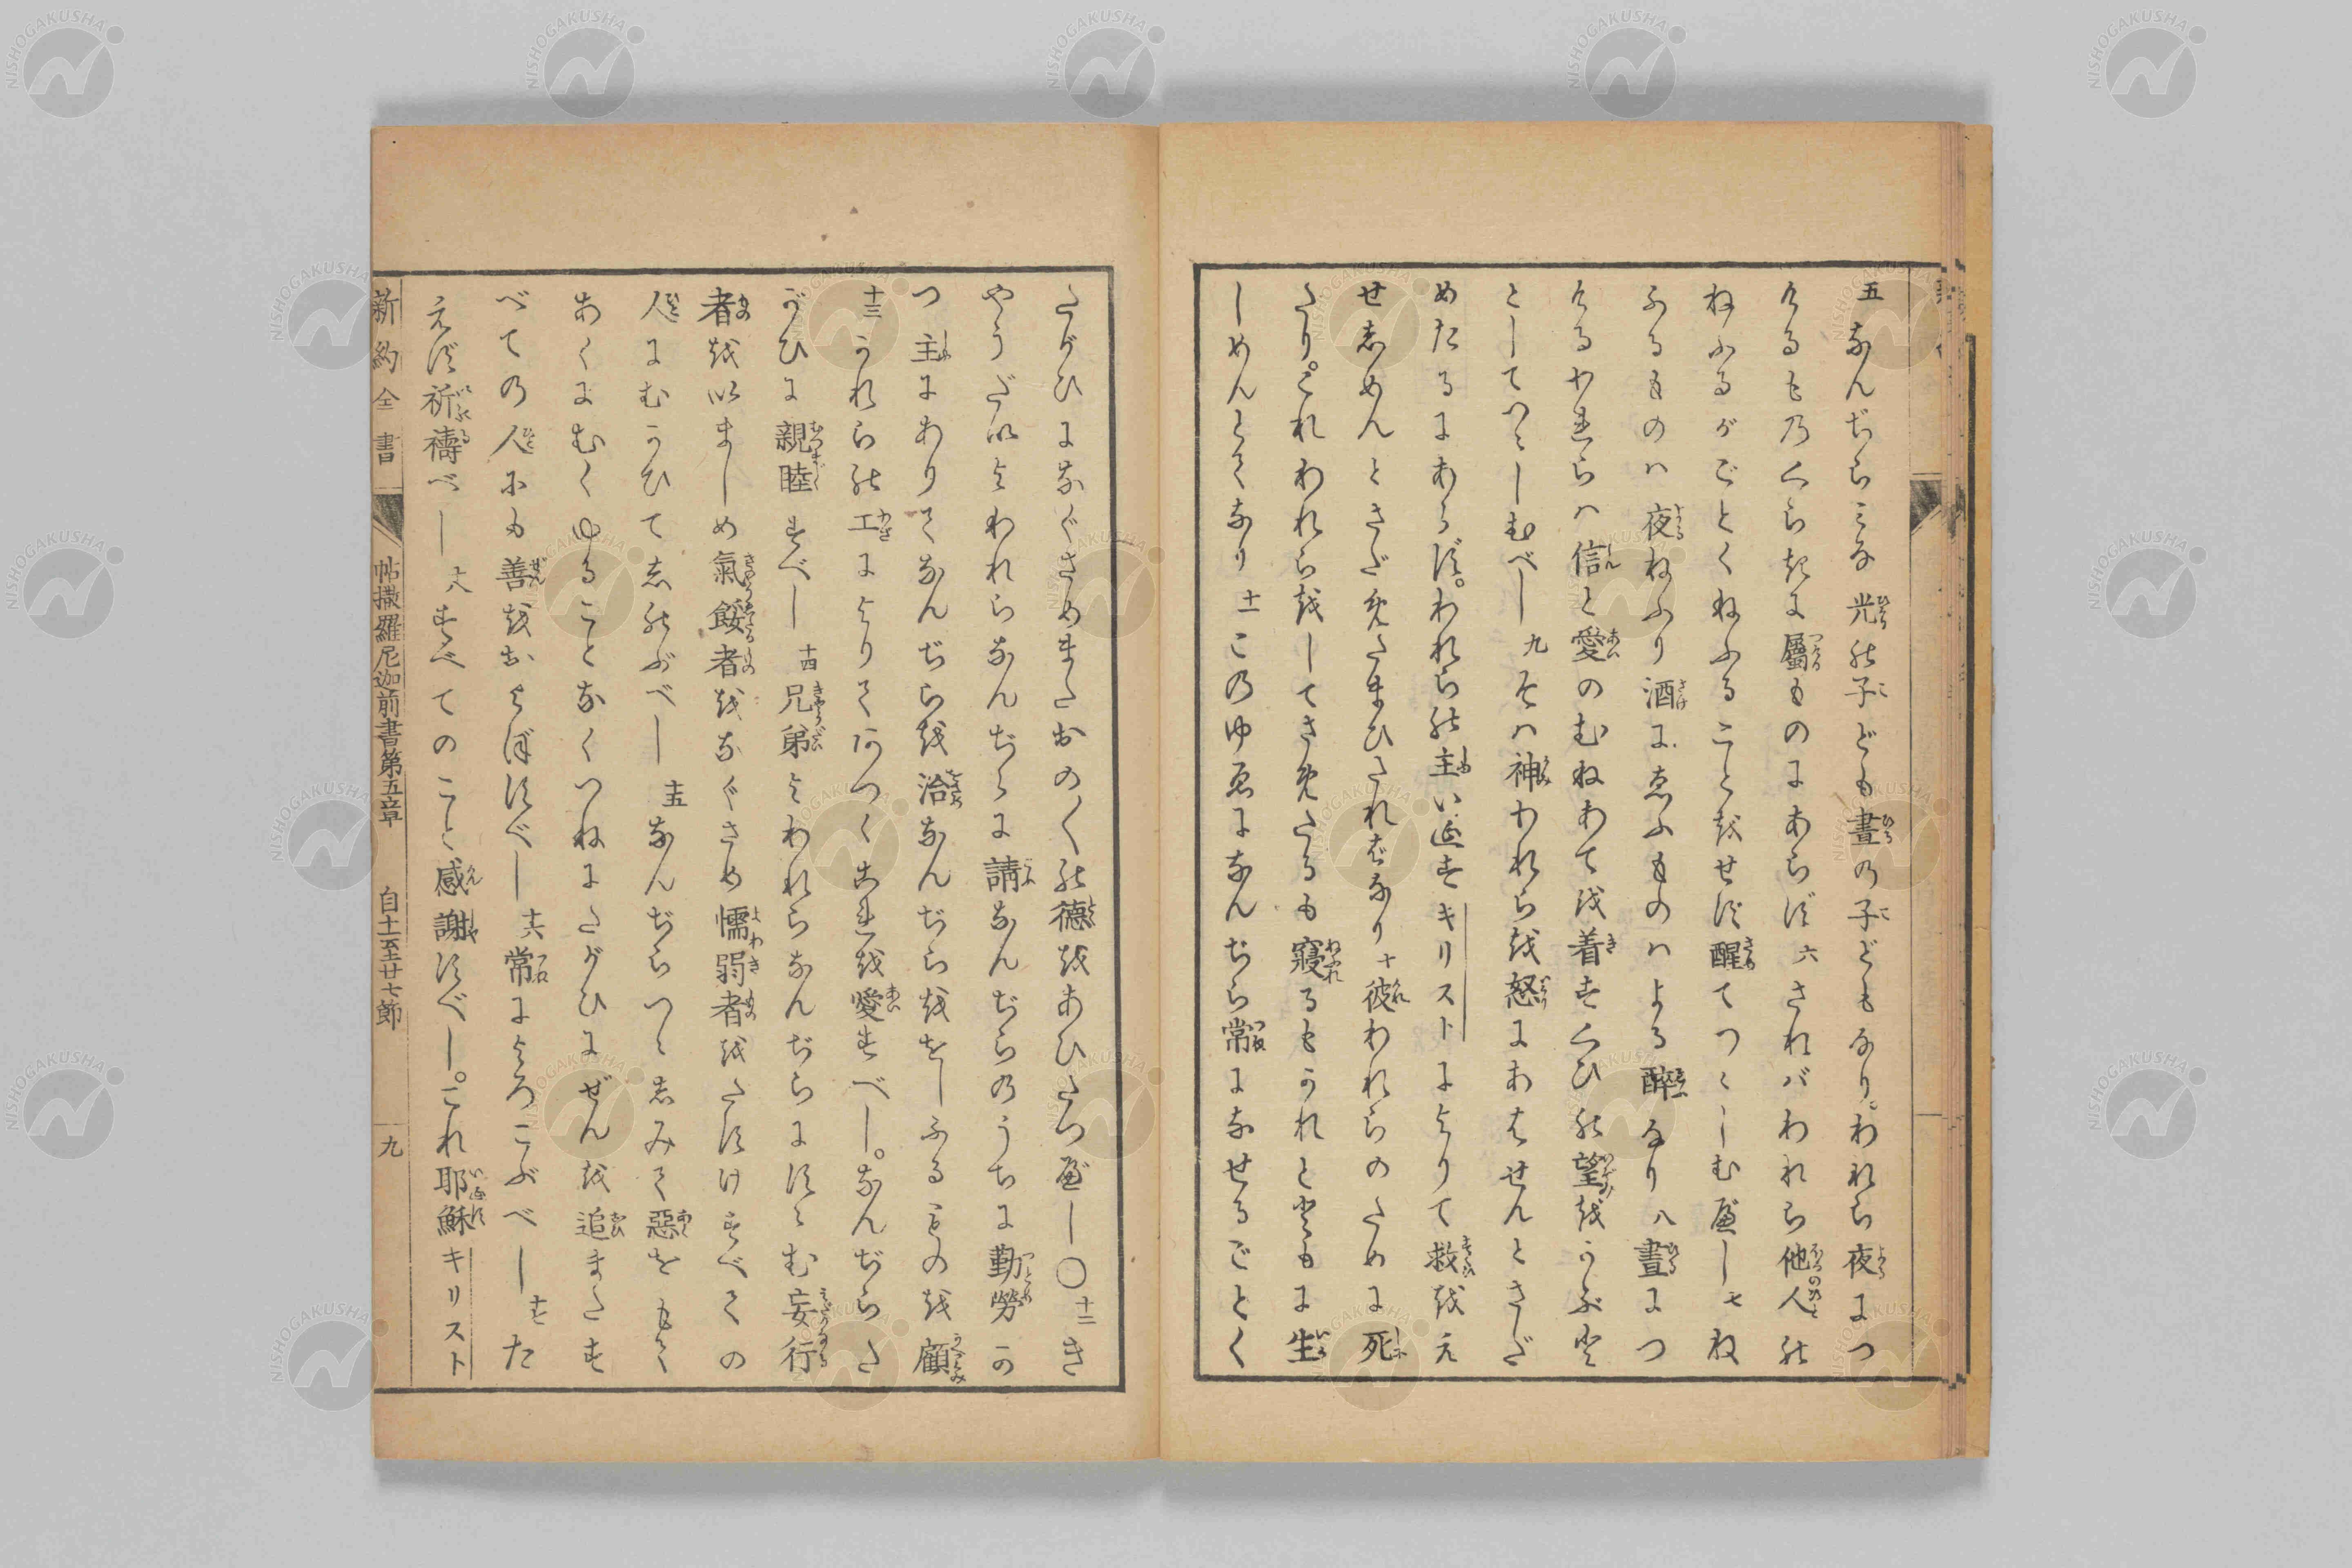 五なんぢらみな光の子ども晝の子どもなりわれら夜につ
けるもの人くらきに屬ものにあらず六さればわれら他人の
ねふるがごとくねふることをせず醒てつゝしむべし七ね
ふるものハ夜ねふり酒にゑふものハよる醉なり八晝につ
けるわれらハ信と愛のむねあてを着すくひの望をかぶと
としてつゝしむべし九そハ神われらを怒にあはせんとさだ
めたるにあらず。われらの主いゑすキリストによりて救をえ
せしめんとさだめたまひたればなり十彼われらのために死
たり。これわれらをしてさめたるも寢るもかれとともに生
しめんとてなり十一このゆゑになんぢら常になせるごとく
たがひになぐさめまたおの〳〵の德をあひたつべし〇十二き
やうだいよわれらなんぢらに請なんぢらのうちに勤勞か
つ主にありてなんぢらを治なんぢらををしふるものを顧
十三かれらの工によりてあつくこれを愛すべし。なんぢらた
がひに親睦すべし十四兄弟よわれらなんぢらにすゝむ妄行
者をいましめ氣餒者をなぐさめ懦弱者をたすけすべての
人にむかひてしのぶべし十五なんぢらつゝしみて惡をもて
あくにむくゆることなくつねにたがひにぜんを追またす
べての人にも善をおよぼすべし十六常によろこぶべし十七た
えず祈禱べし十八すべてのこと感謝すべし。これ耶穌キリスト
新約全書 帖撒羅尼迦前書第五章 自十一至廿七節 九